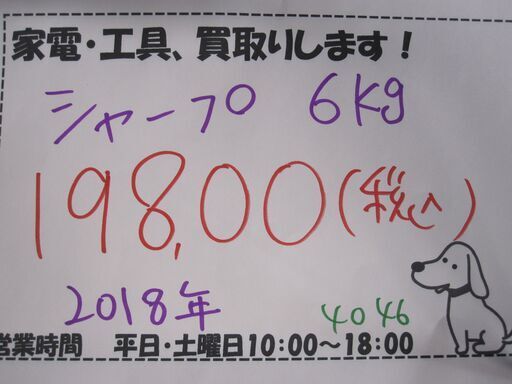 家電・工具、買取りします!
シャープ 6kg
198,00(税込)
2018年
4046
営業時間 平日・土曜日10:00～18:00